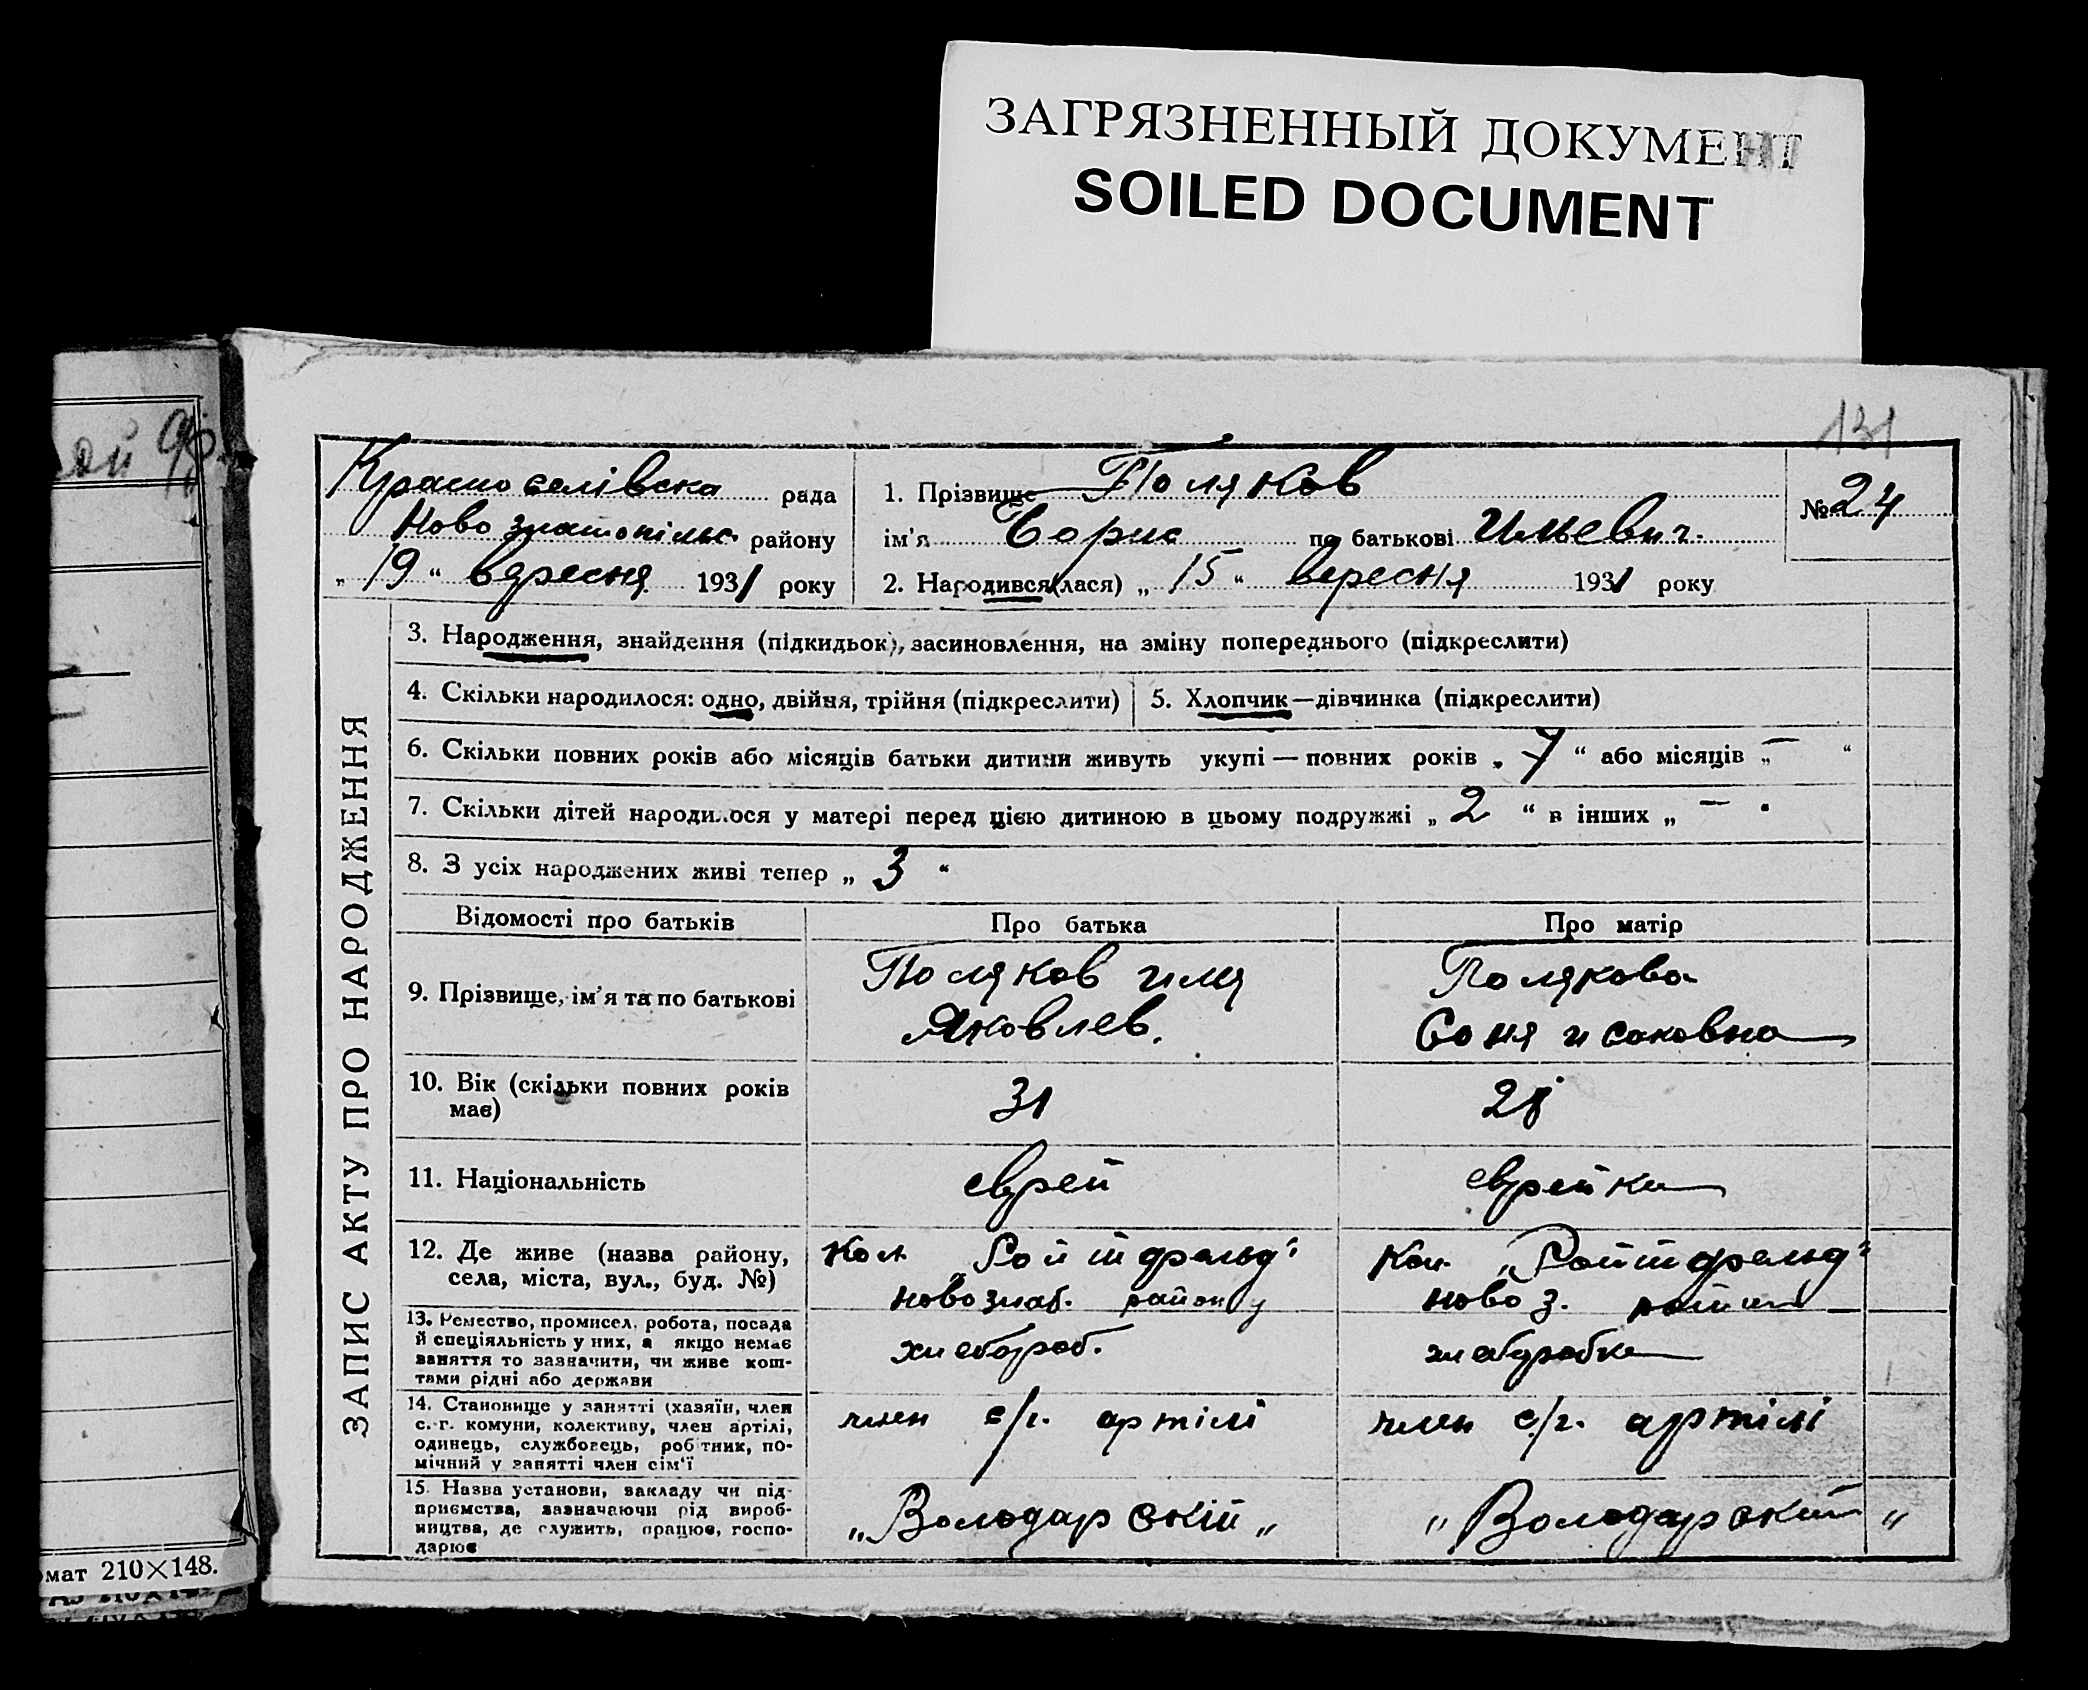 ЗАГРЯЗНЕННЫЙ ДОКУМЕНТ
SOILED DOCUMENT
131
Красноселівска рада
Ново златопільс. району
„ 19 “ вересня 1931 року
1. Прізвище Поляков
ім'я Борис по батькові Ильевич.
2. Народився(лася) „ 15 “ вересня 1931 року
№ 24
ЗАПИС АКТУ ПРО НАРОДЖЕННЯ
3. Народження, знайдення (підкидьок), засиновлення, на зміну попереднього (підкреслити)
4. Скільки народилося: одно, двійня, трійня (підкреслити)
5. Хлопчик—дівчинка (підкреслити)
6. Скільки повних років або місяців батьки дитини живуть укупі — повних років „ 7 “ або місяців „ — “
7. Скільки дітей народилося у матері перед цією дитиною в цьому подружжі „ 2 “ в інших „ — “
8. З усіх народжених живі тепер „ 3 “
Відомості про батьків Про батька Про матір
9. Прізвище, ім'я та по батькові
Поляков Иля
Яковлев.
Полякова
Соня Исаковна
10. Вік (скільки повних років
має)
31
28
11. Національність
єврей
єврейка
12. Де живе (назва району,
села, міста, вул., буд. №)
Кол. „Ройтфельд“
Новозлат. району
Кол. „Ройтфельд“
Ново з. району
13. Ремество, промисел, робота, посада
й спеціяльність у них, а якщо немає
заняття то зазначити, чи живе кош-
тами рідні або держави
хлебороб.
хлеборобка
14. Становище у занятті (хазяїн, член
с.-г. комуни, колективу, член артілі,
одинець, службовець, робітник, по-
мічний у занятті член сім'ї
член с/г. артілі
член с/г. артілі
15. Назва установи, закладу чи під-
приємства, зазначаючи рід вироб-
ництва, де служить, працює, госпо-
дарює
„Володарскій„
„Володарский„
мат 210×148.